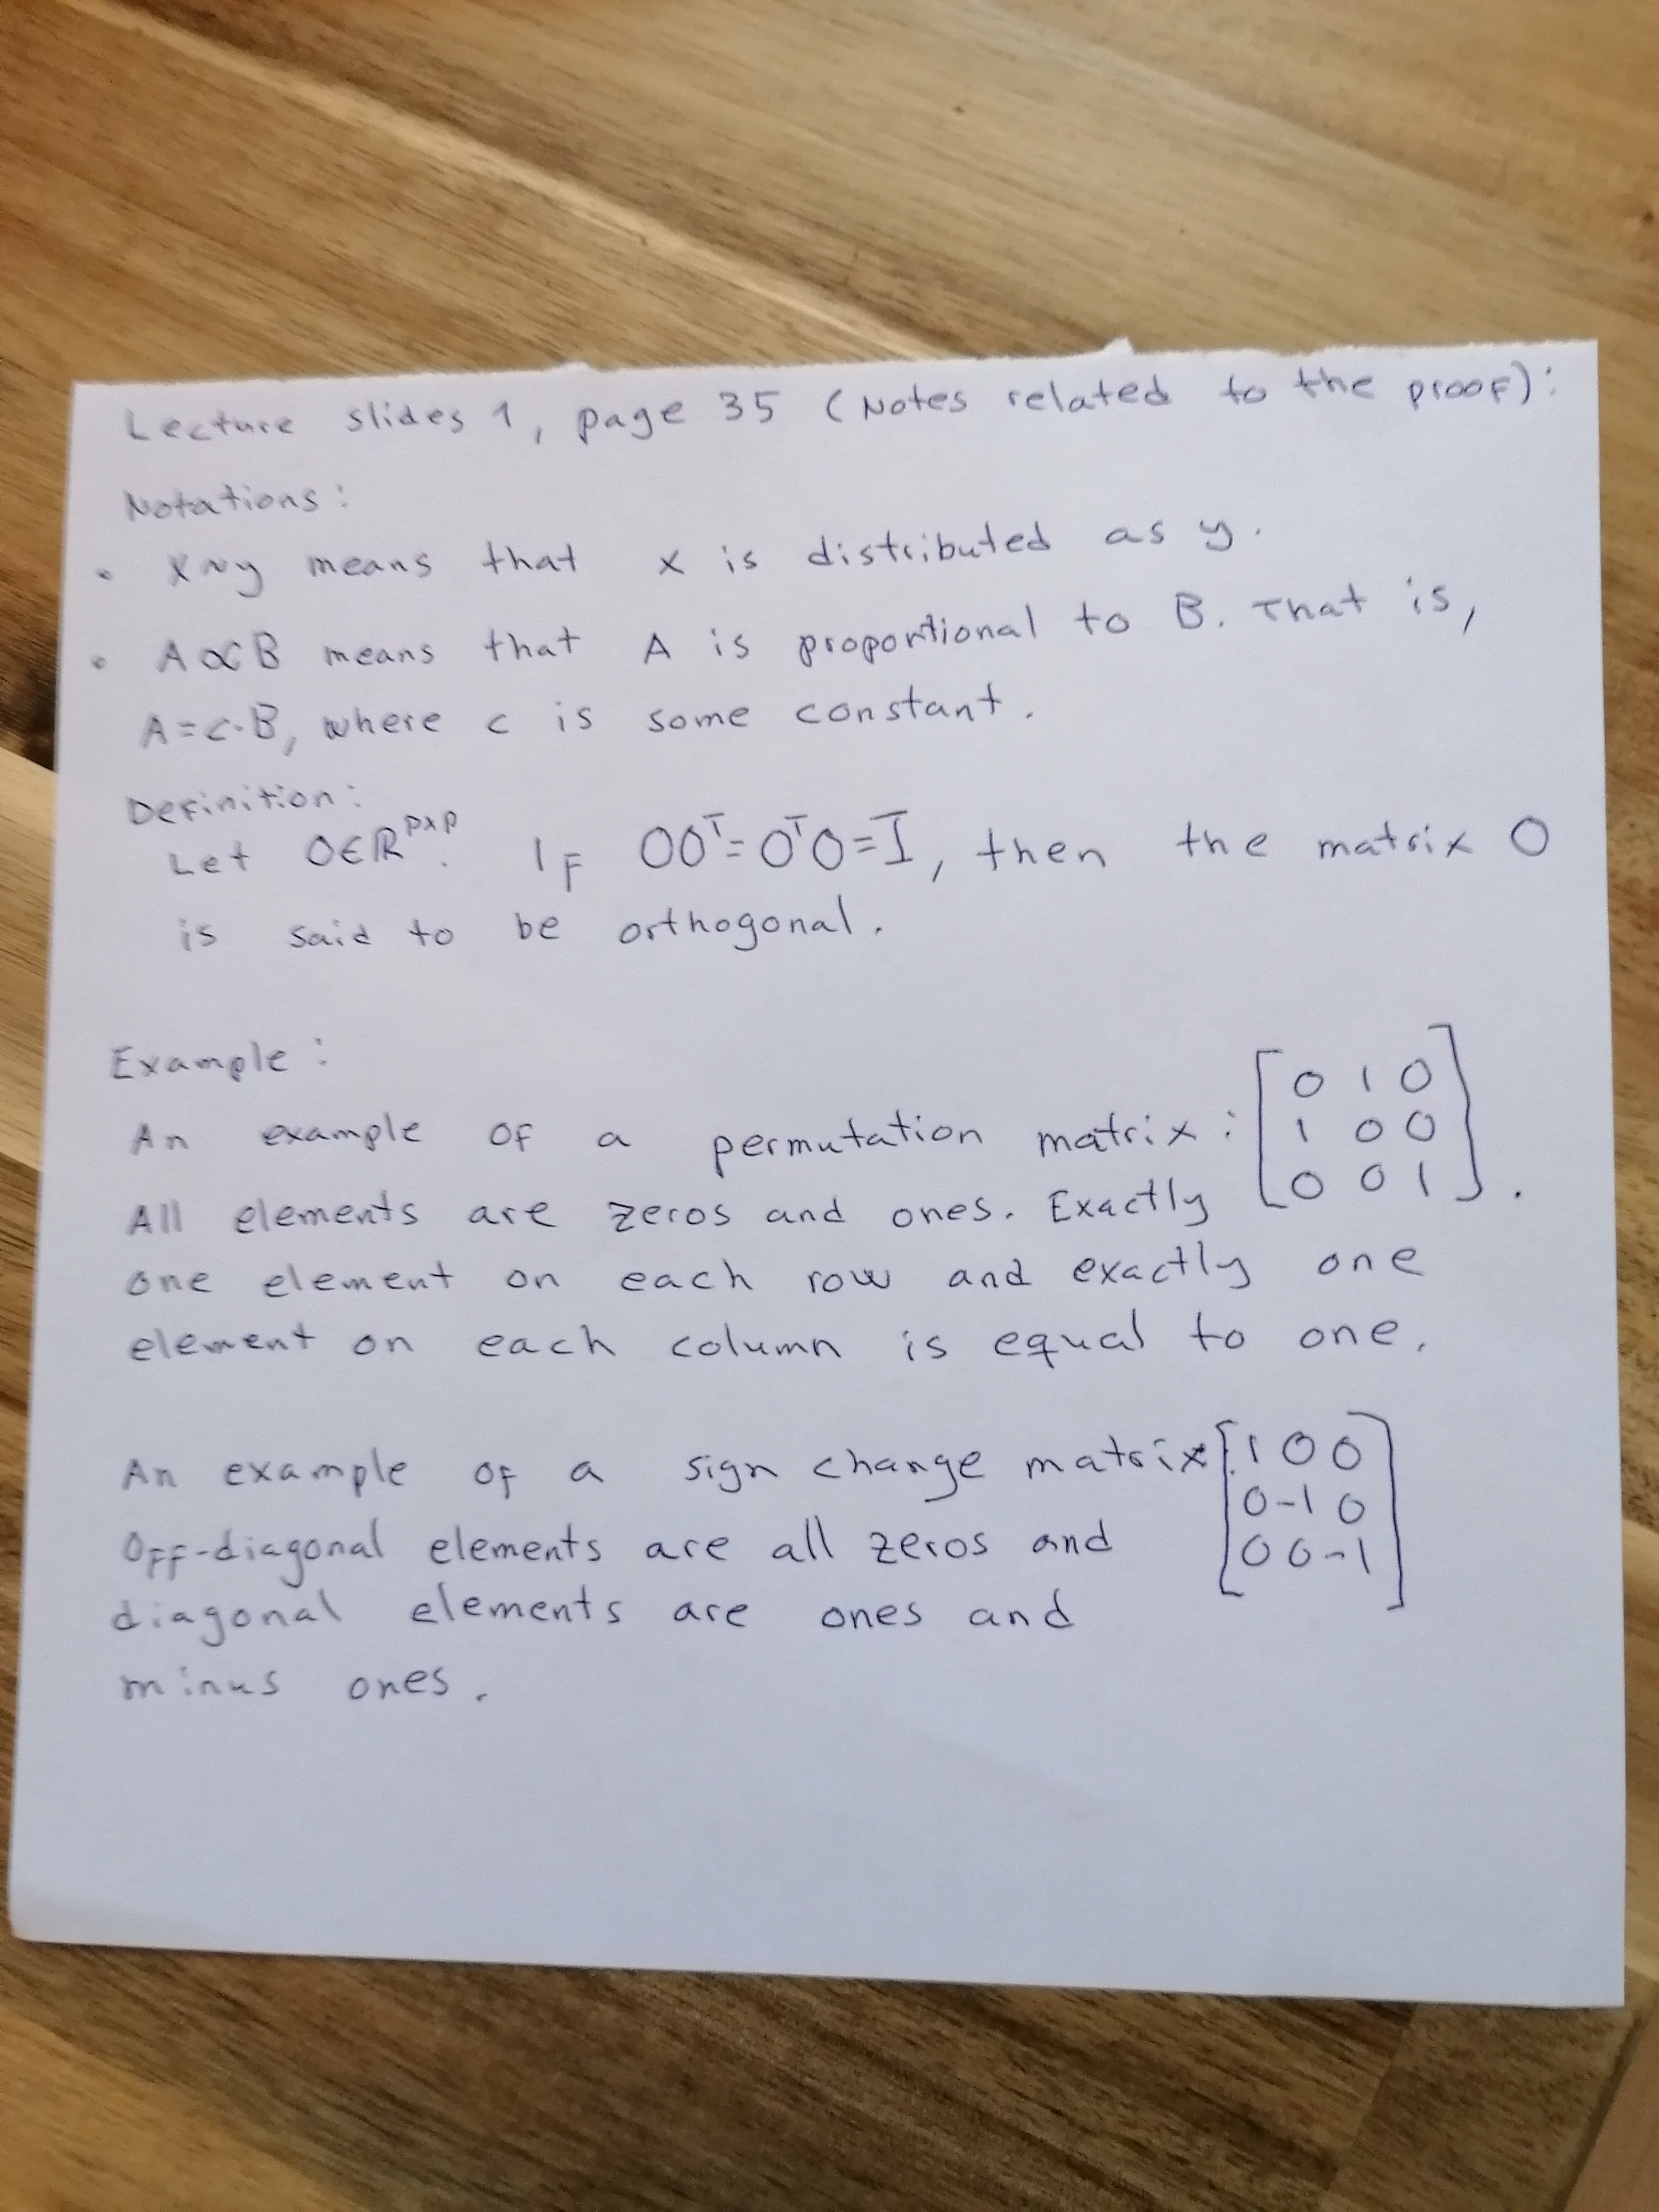 Lecture slides 1, page 35 (Notes related to the proof):
Notations:
• x~y means that x is distributed as y.
• A∝B means that A is proportional to B. That is,
A=c·B, where c is some constant.
Definition:
Let O∈ℝᵖˣᵖ. If OOᵀ=OᵀO=I, then the matrix O
is said to be orthogonal.
Example:
An example of a permutation matrix: [0 1 0
1 0 0
0 0 1].
All elements are zeros and ones. Exactly
one element on each row and exactly one
element on each column is equal to one.
An example of a sign change matrix: [1 0 0
0 -1 0
0 0 -1]
Off-diagonal elements are all zeros and
diagonal elements are ones and
minus ones.